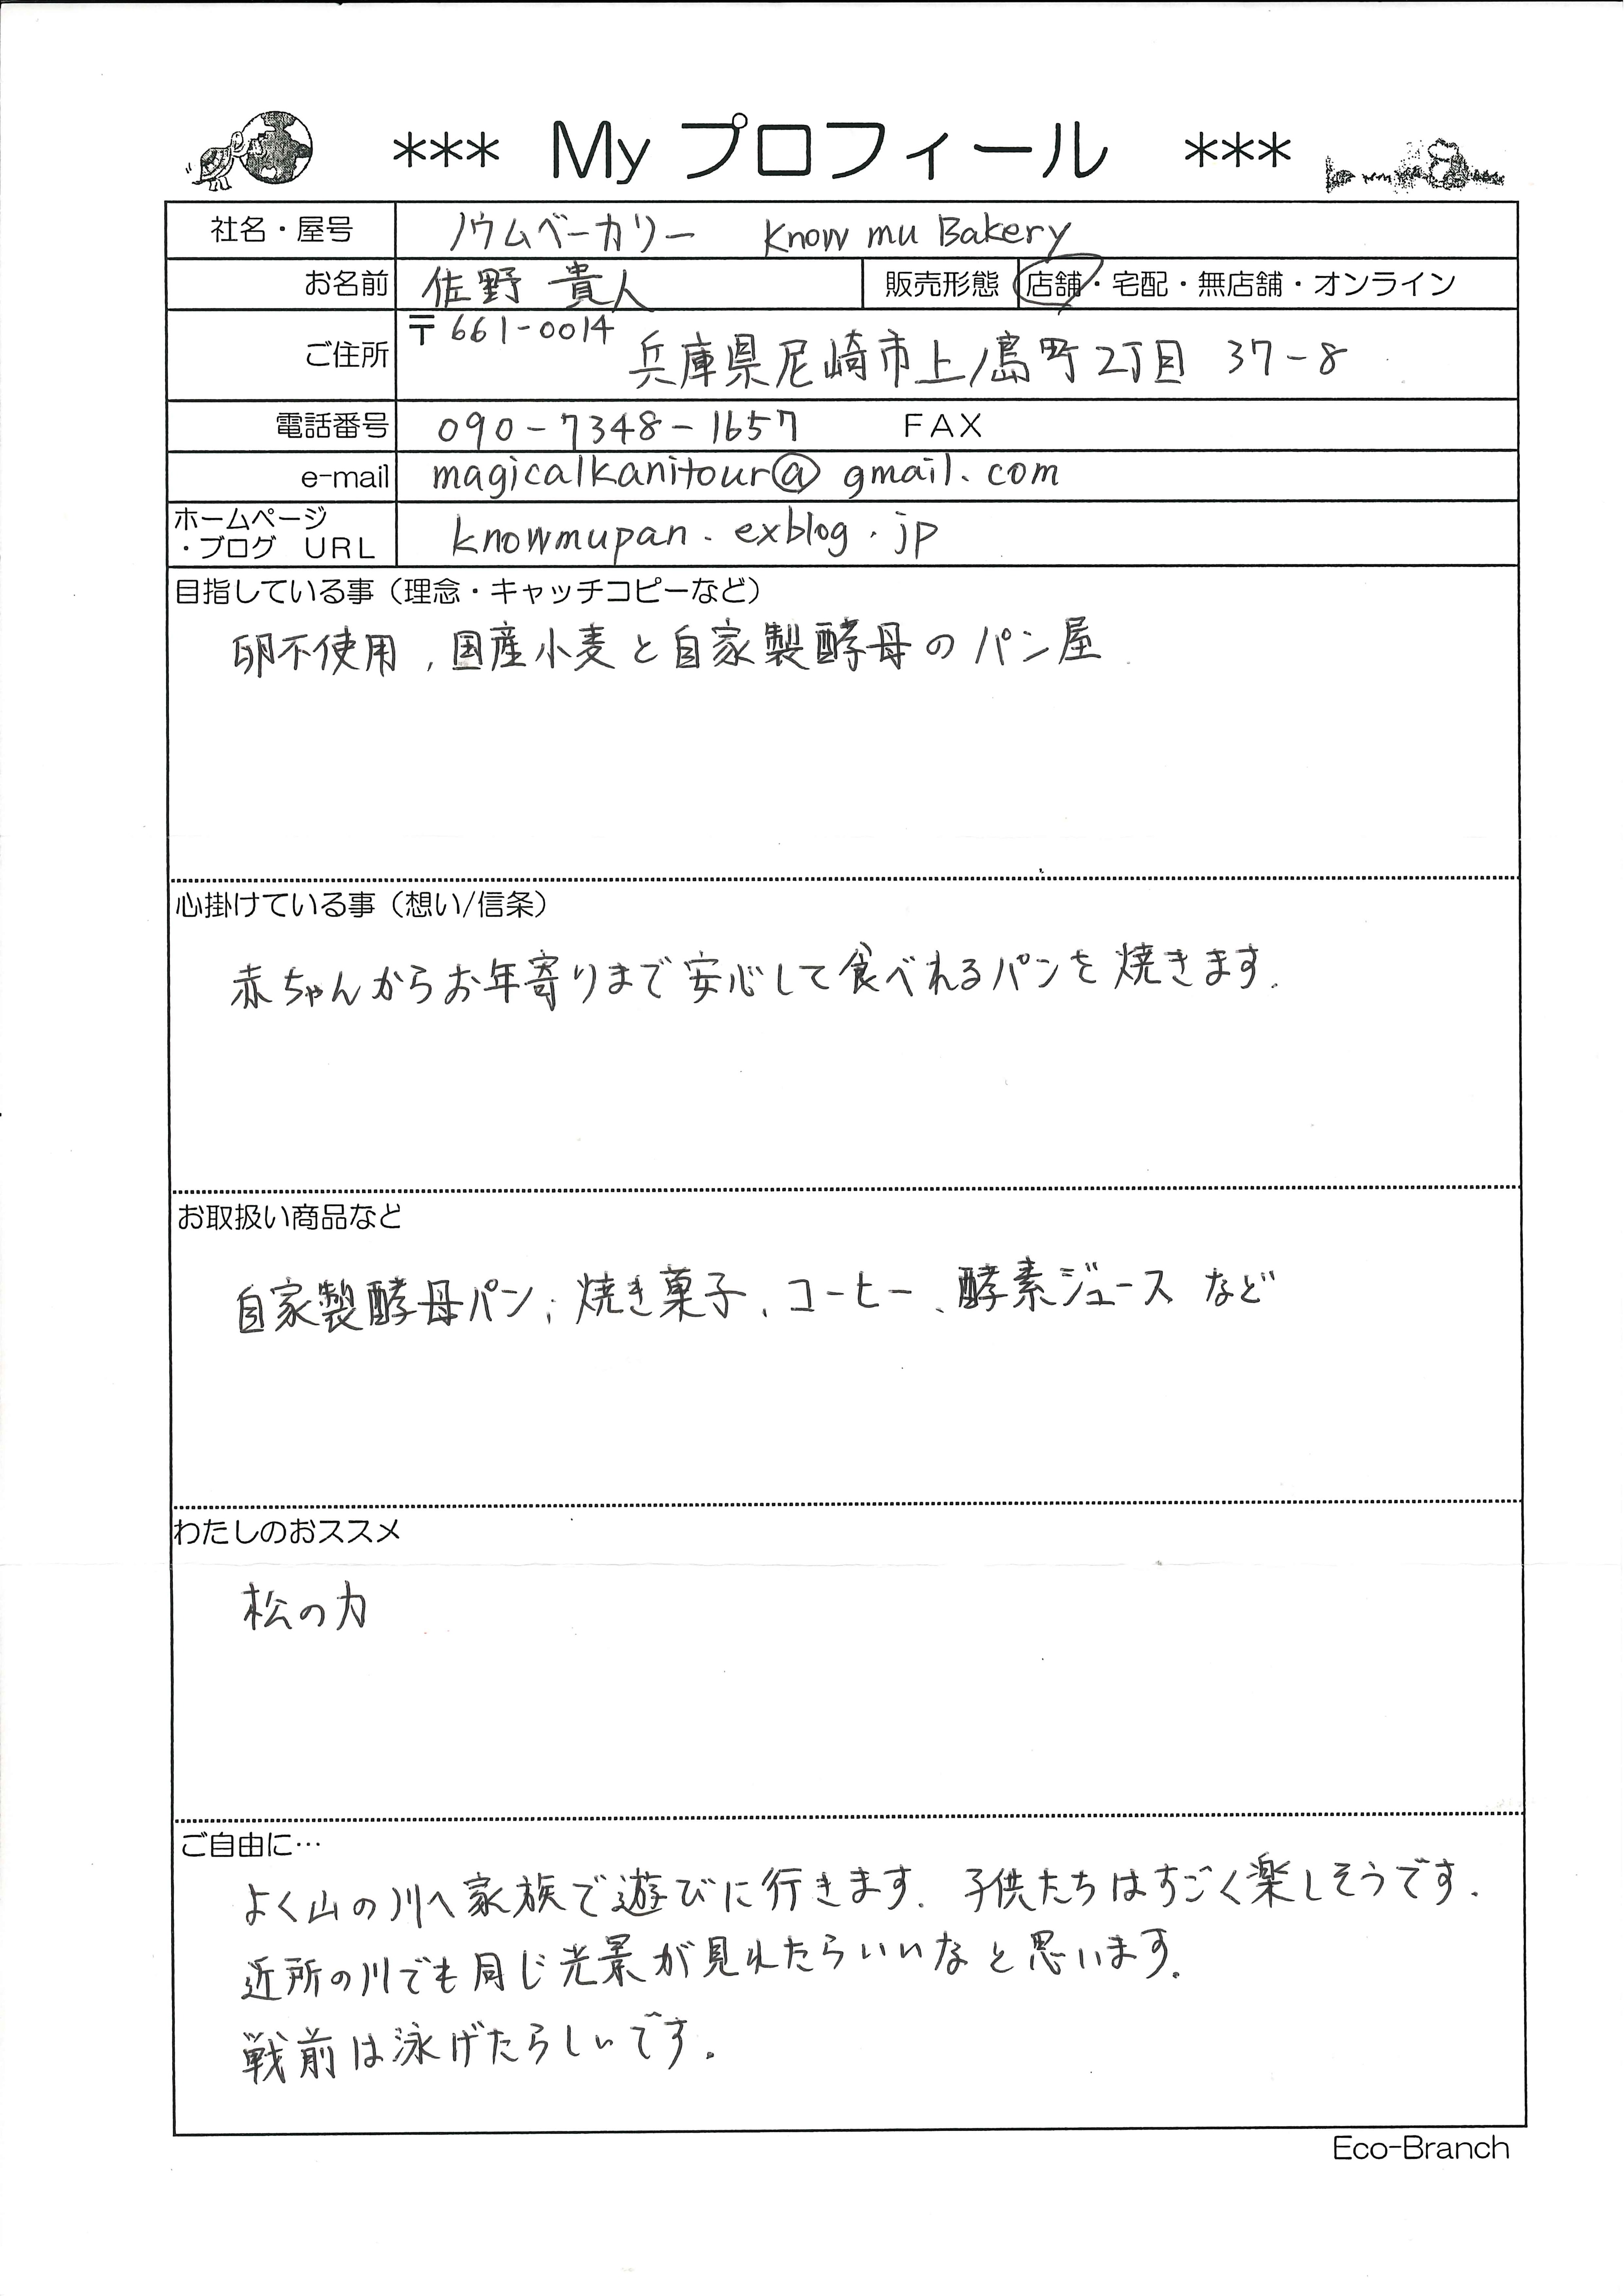 *** My プロフィール ***
社名・屋号 ノウムベーカリー Know mu Bakery
お名前 佐野 貴人 販売形態 店舗・宅配・無店舗・オンライン
ご住所 〒661-0014 兵庫県尼崎市上ノ島町2丁目 37-8
電話番号 090-7348-1657 FAX
e-mail magicalkanitour@gmail.com
ホームページ
・ブログ URL knowmupan.exblog.jp
目指している事（理念・キャッチコピーなど）
卵不使用，国産小麦と自家製酵母のパン屋
心掛けている事（想い/信条）
赤ちゃんからお年寄りまで安心して食べれるパンを焼きます．
お取扱い商品など
自家製酵母パン、焼き菓子、コーヒー、酵素ジュース など
わたしのおススメ
松の力
ご自由に…
よく山の川へ家族で遊びに行きます．子供たちはすごく楽しそうです．
近所の川でも同じ光景が見れたらいいなと思います．
戦前は泳げたらしいです．
Eco-Branch